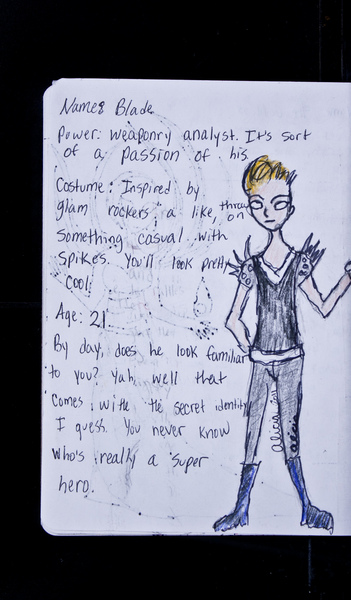 Name: Blade
Power: weaponry analyst. It's sort
of a passion of his.
Costume: Inspired by
glam rockers a like, throw on
something casual with
spikes. You'll look pretty
cool.
Age: 21
By day, does he look familiar
to you? Yah, well that
comes with the secret identity
I guess. You never know
who's really a super
hero.